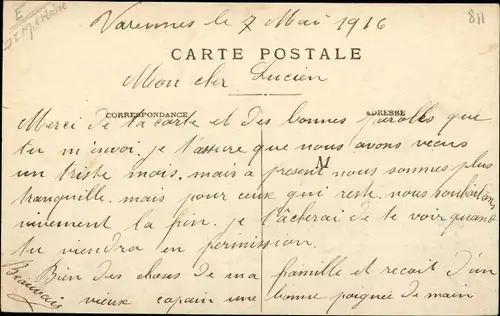 Varennes le 7 Mai 1916
811
CARTE POSTALE
Mon cher Lucien
CORRESPONDANCE
ADRESSE
Merci de ta carte et des bonnes parolles que
tu m'envoi. je t'assure que nous avons vecus
un triste mois. mais a présent nous sommes plus
M
tranquille. mais pour ceux qui reste nous souhaitons
vivement la fin. je tâcherai de te voir quand
tu viendra en permission.
Bien des choses de ma famille et recoit d'un
vieux copain une bonne poignée de main
Beauvais